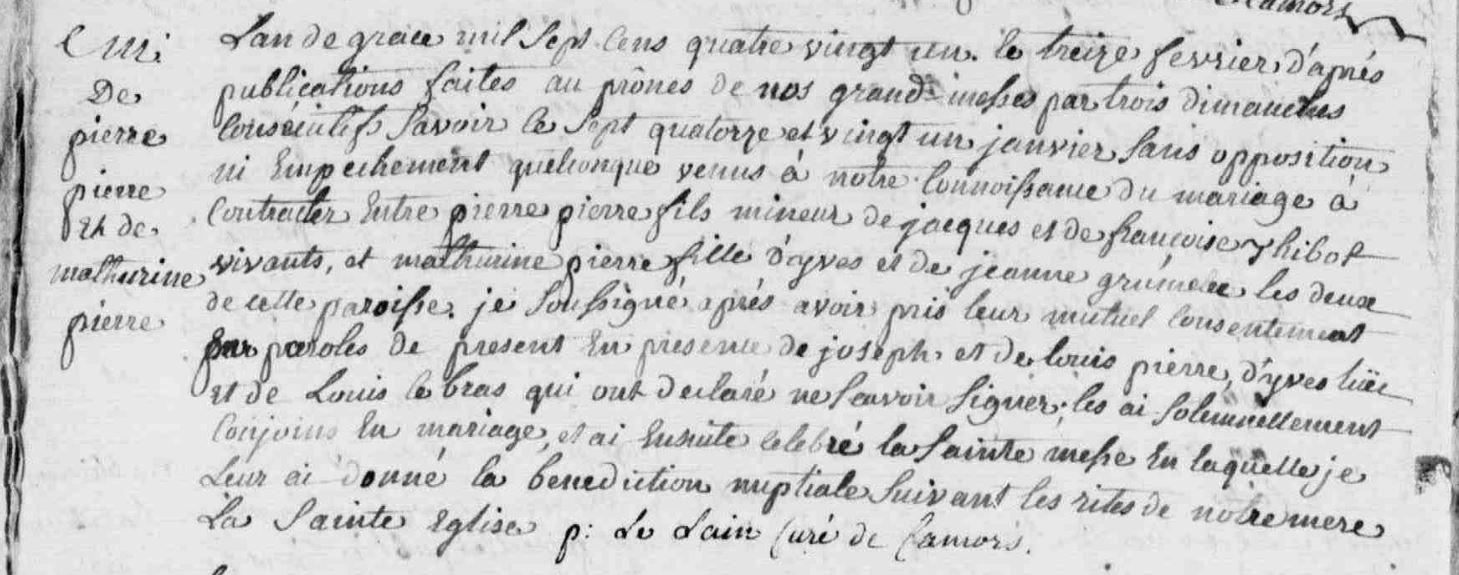 Camors
Lan de grace mil Sept Cens quatre vingt un. le treize fevrier, d'aprés
publications faites au prônes de nos grand: messes par trois dimanches
Consécutifs Savoir le Sept quatorze et vingt un janvier Sans opposition
ni Empechement quelconque venus à notre Connoissance du mariage à
Contracter Entre pierre pierre fils mineur de jacques et de françoise Thibot
vivants, et mathurine pierre fille d'yves et de jeanne les deux
de cette paroisse. je Soussigné aprés avoir pris leur mutuel Consentement
par paroles de present En presence de joseph et de louis pierre, d'yves
et de Louis le bras qui ont declaré ne Savoir Signer. les ai Solemnellement
Conjoins En mariage, et ai Ensuite celebré la Sainte messe En laquelle je
Leur ai donné la benediction nuptiale Suivant les rites de notre mere
La Sainte Eglise p: Le Lain Curé de Camors.
De
pierre
pierre
Et de
mathurine
pierre